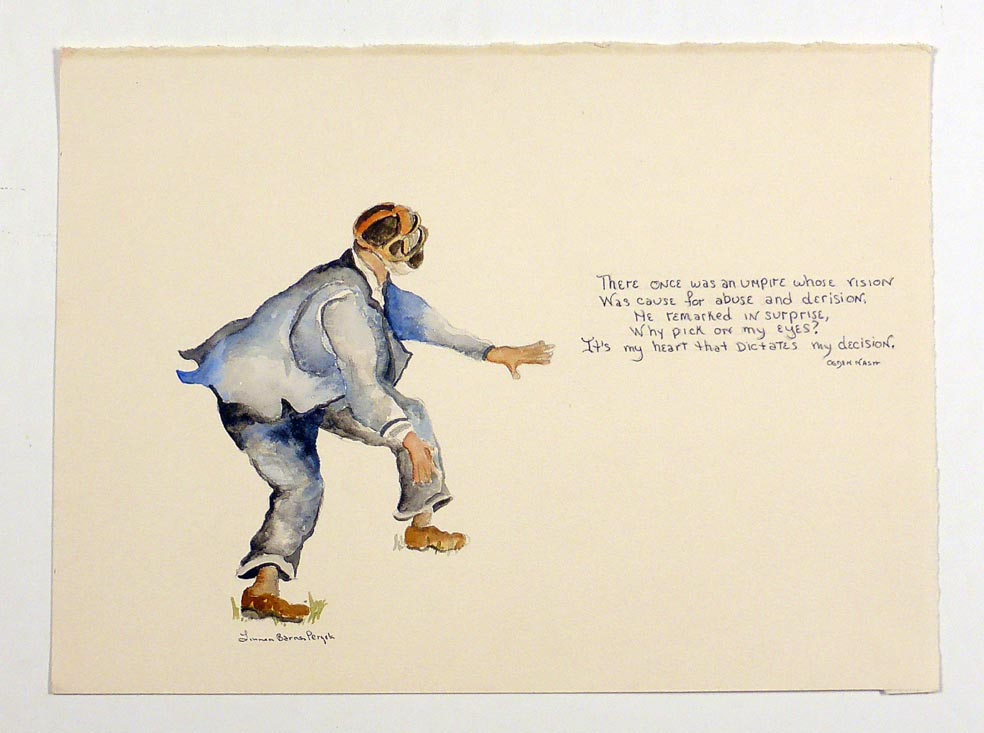 There once was an umpire whose vision
Was cause for abuse and derision.
He remarked in surprise,
Why pick on my eyes?
It's my heart that dictates my decision.
Ogden Nash
Barnes